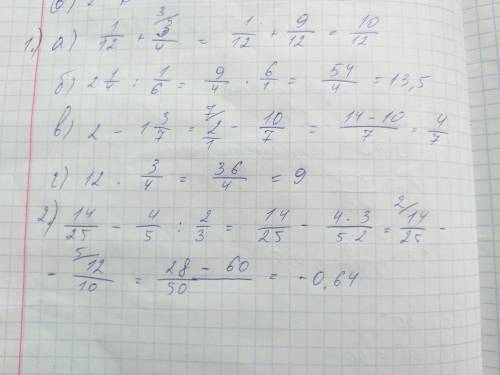 1.) а) 1/12 + 3/4 (3) = 1/12 + 9/12 = 10/12
б) 2 1/4 : 1/6 = 9/4 · 6/1 = 54/4 = 13,5
в) 2 - 1 3/7 = 2/1 (7) - 10/7 = 14-10/7 = 4/7
г) 12 · 3/4 = 36/4 = 9
2) 14/25 - 4/5 : 2/3 = 14/25 - 4·3/5·2 = 14/25 (2) -
- 12/10 (5) = 28-60/50 = -0,64